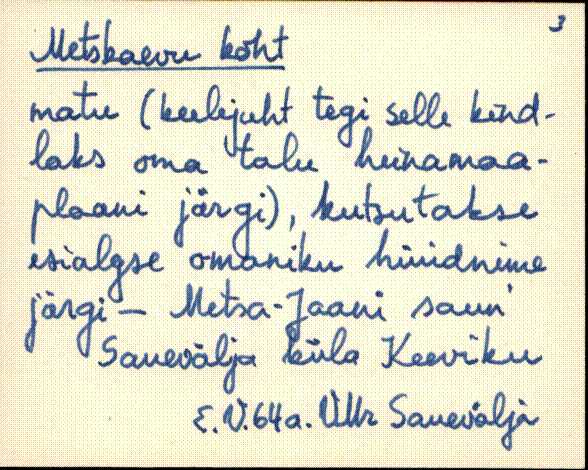 3
Metskaevu koht
matu (keelejuht tegi selle kind-
laks oma talu heinamaa-
plaani järgi), kutsutakse
esialgse omaniku hüüdnime
järgi – Metsa-Jaani saun'
Sauevälja küla Keeviku
E. V. 64a. VMr Sauevälja